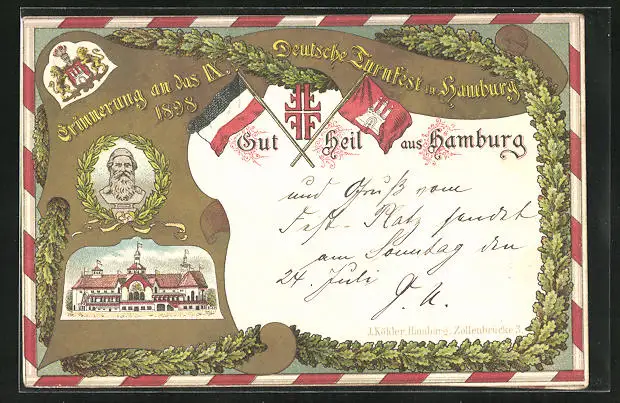 Erinnerung an das IX. Deutsche Turnfest in Hamburg
1898
Gut Heil aus Hamburg
und Gruß vom
Fest-Platz sendet
am Sonntag den
24. Juli
J. Köhler, Hamburg, Zollenbrücke 3.